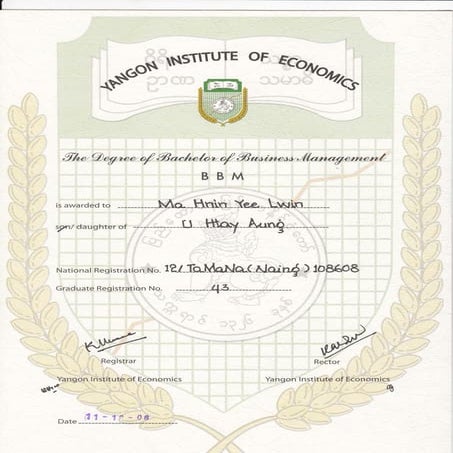 YANGON INSTITUTE OF ECONOMICS
The Degree of Bachelor of Business Management
B B M
is awarded to Ma Hnin Yee Lwin
son/ daughter of U Htay Aung
National Registration No. 12/TaMaNa(Naing)108608
Graduate Registration No. 43
Registrar Rector
Yangon Institute of Economics Yangon Institute of Economics
Date